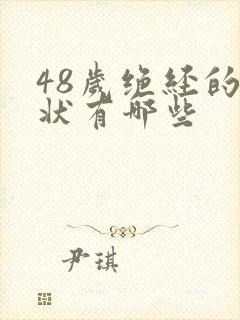 48歲绝经的
状有哪些
尹琪